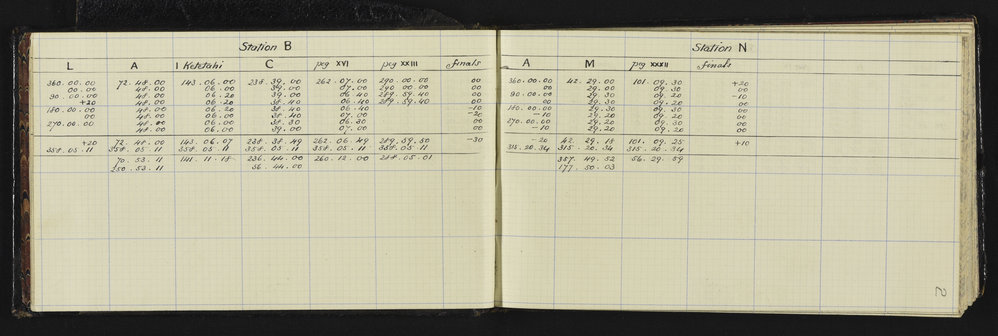 Station B
L A I Ketetahi C peg XVI peg XXIII finals
360.00.00 72.48.00 143.06.00 238.39.00 262.07.00 290.00.00 00
00.00 48.00 06.00 39.00 07.00 290.00.00 00
90.00.00 48.00 06.20 39.00 06.40 289.59.40 00
+20 48.00 06.20 38.40 06.40 289.59.40 00
180.00.00 48.00 06.20 38.40 06.40 -10
00 48.00 06.00 38.40 07.00 -20
270.00.00 48.00 06.00 38.30 06.30 00
48.00 06.00 39.00 07.00 00
+20 72.48.00 143.06.07 238.38.49 262.06.49 289.59.50 -30
358.05.11 358.05.11 358.05.11 358.05.11 358.05.11 358.05.11
70.53.11 141.11.18 236.44.00 260.12.00 288.05.01
250.53.11 56.44.00
Station N
A M peg XXXII finals
360.00.00 42.29.00 101.09.30 +20
00 29.00 09.30 00
90.00.00 29.30 09.20 -10
00 29.30 09.20 00
180.00.00 29.30 09.30 00
-10 29.20 09.20 00
270.00.00 29.20 09.30 00
-10 29.20 09.20 00
-20 42.29.18 101.09.25 +10
315.20.34 315.20.34 315.20.34
357.49.52 56.29.59
177.50.03
2